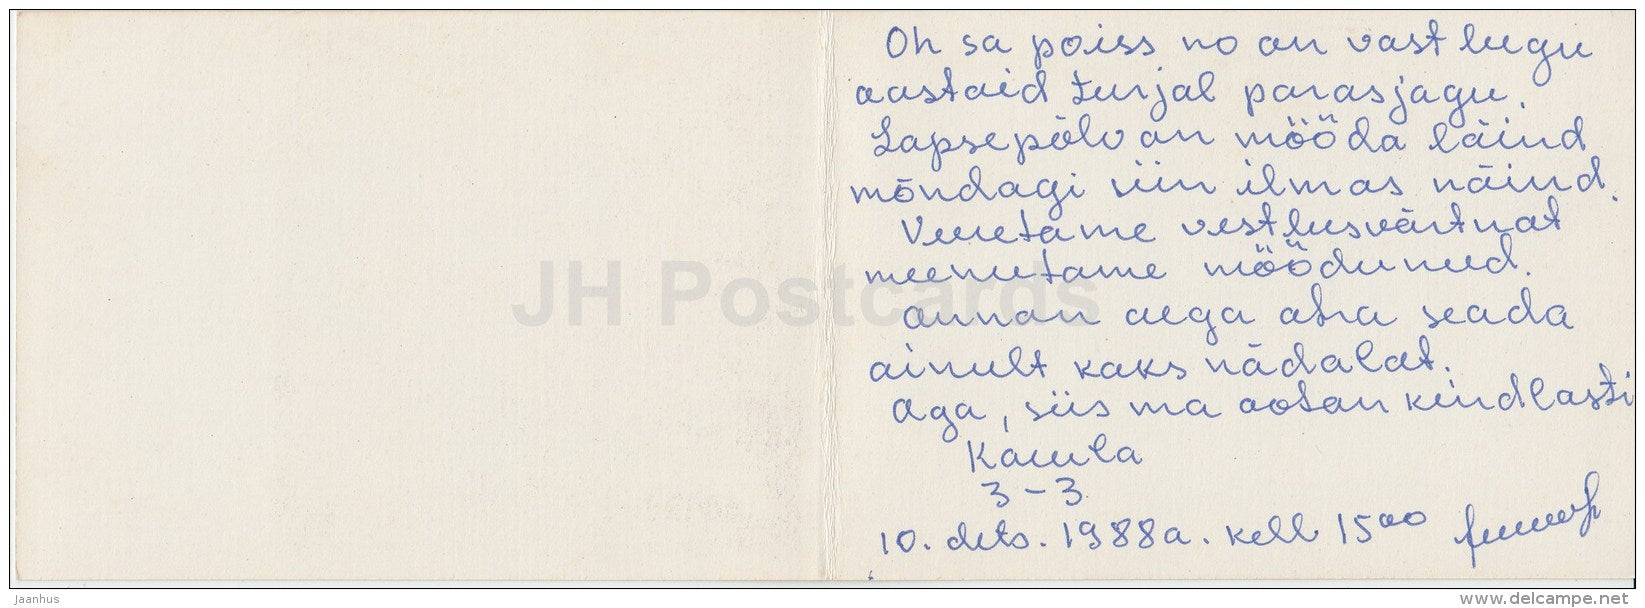 Oh sa poiss no on vast lugu
aastaid turjal parasjagu.
Lapsepõlv on mööda läind
mõndagi siin ilmas näind.
Veeetame vestlusväärtnat
meenutame möödunud.
annan aega asja seada
ainult kaks nädalat.
aga, siis ma ootan kindlasti
3-3
10. dets. 1988a. kell 15 00
JH Postcards
jaanhus
www.delcampe.net